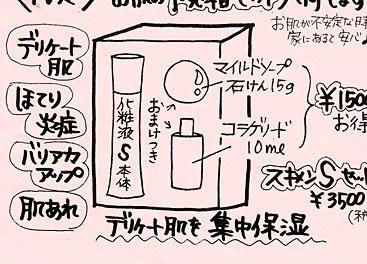 お肌が不安定な時
家にあると安心♪
デリケート
肌
ほてり
炎症
バリアカ
アップ
肌あれ
化粧液S本体
おまけつき
マイルドソープ
石けん15g
コラゲリード
10ml
¥1500
お得
スキメンSセット
¥3500
デリケート肌を集中保湿